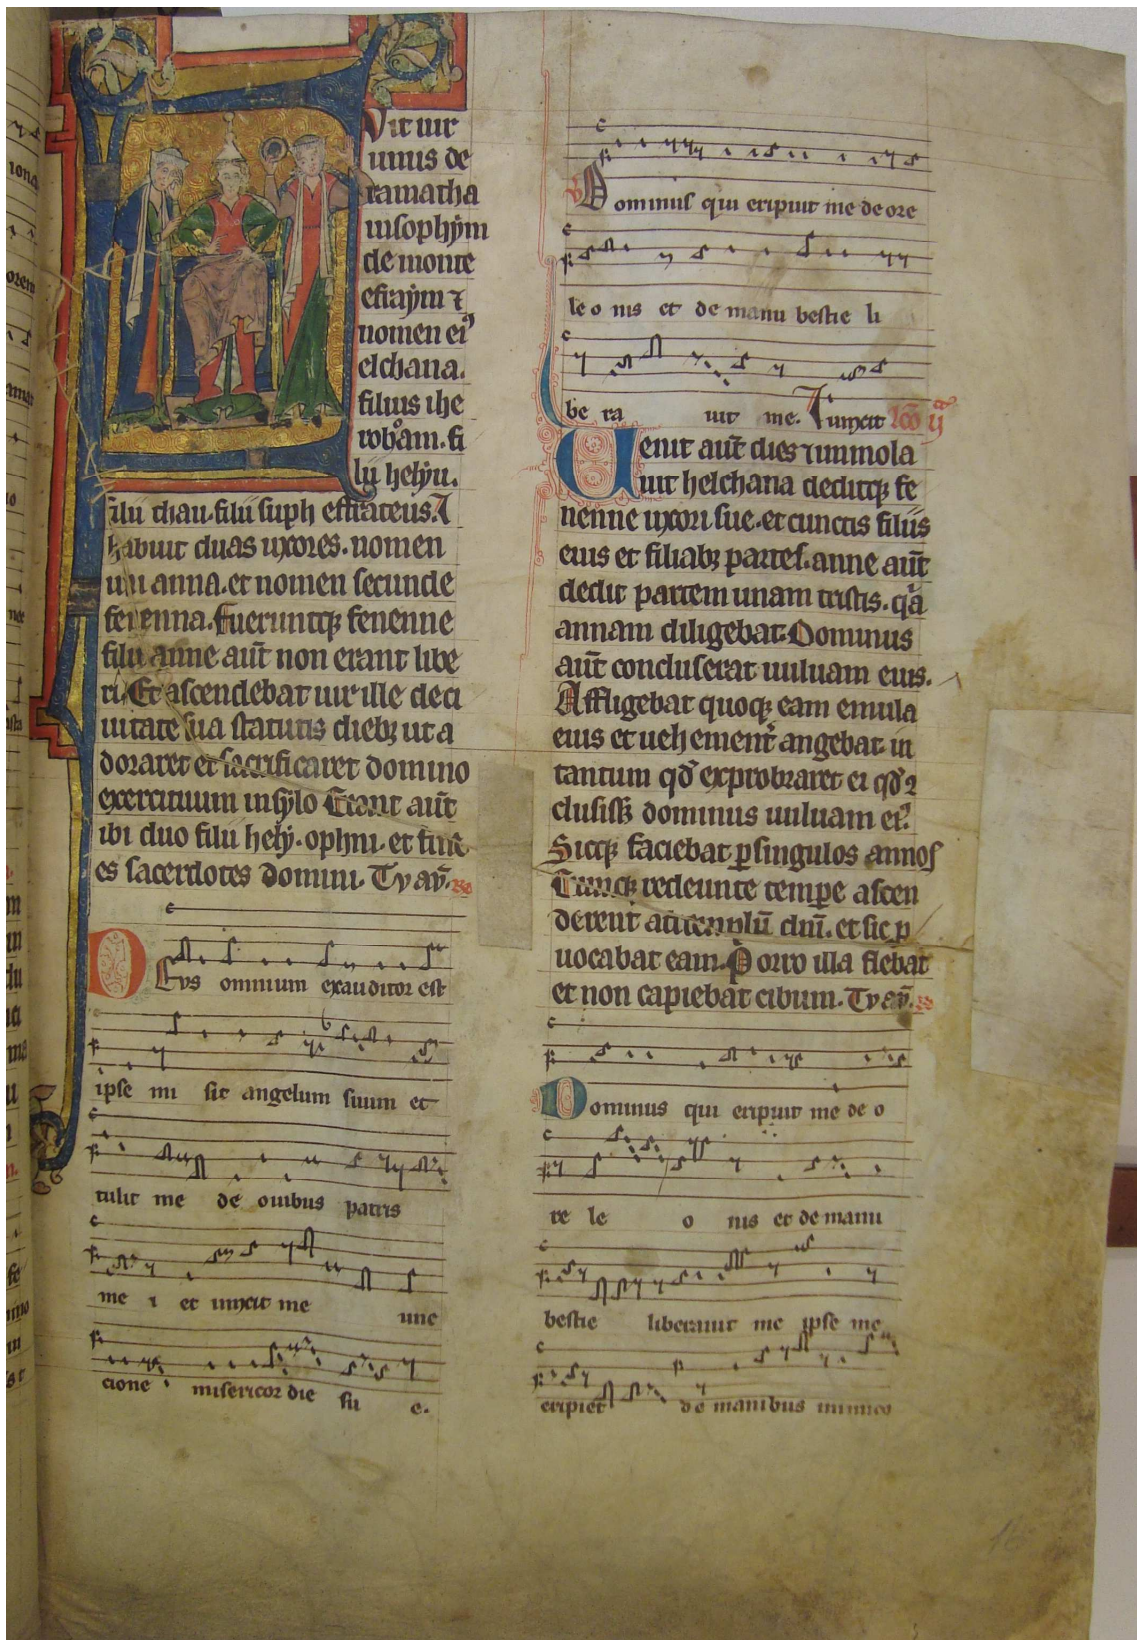 Vit uir
unus de
ramatha
im sophym
de monte
efraym ⁊
nomen ei⁹
elchana.
filius ihe
roboam. fi
lii helyu.
filii thau. filii suph effrateus. ⁊
habuit duas uxores. nomen
uni anna. et nomen secunde
fenenna. Fueruntq; fenenne
filii anne aut̄ non erant libe
ri. Et ascendebat uir ille de ci
uitate sua statutis dieb; ut a
doraret et sacrificaret domino
exercituum in sylo Erant aut̄
ibi duo filii hely. ophni. et fine
es sacerdotes domini. Tv aṽ.
Devs omnium exauditor est
ipse mi sit angelum suum et
tulit me de ouibus patris
me i et unxit me unc
cione misericordie su e.
Dominus qui eripuit me de ore
le o nis et de manu bestie li
be ra uit me. Iunxit
Uenit aut̄ dies ⁊ immola
uit helchana deditq; fe
nenne uxori sue. et cunctis filiis
eius et filiab; partes. anne aut̄
dedit partem unam tristis. q̇a
annam diligebat. Dominus
aut̄ concluserat uuluam eius.
Affligebat quoq; eam emula
eius et uehement̄ angebat in
tantum qd̄ exprobraret ei qd̄ ꝯ
clusiss; dominus uuluam ei⁹.
Sicq; faciebat p singulos annos
Cumq; redeunte tempe ascen
derent ad templū dn̄i. et sic p
uocabat eam. Porro illa flebat
et non capiebat cibum. Tv aṽ.
Dominus qui eripuit me de o
re le o nis et de manu
bestie liberauit me ipse me
eripiet de manibus inimico
16